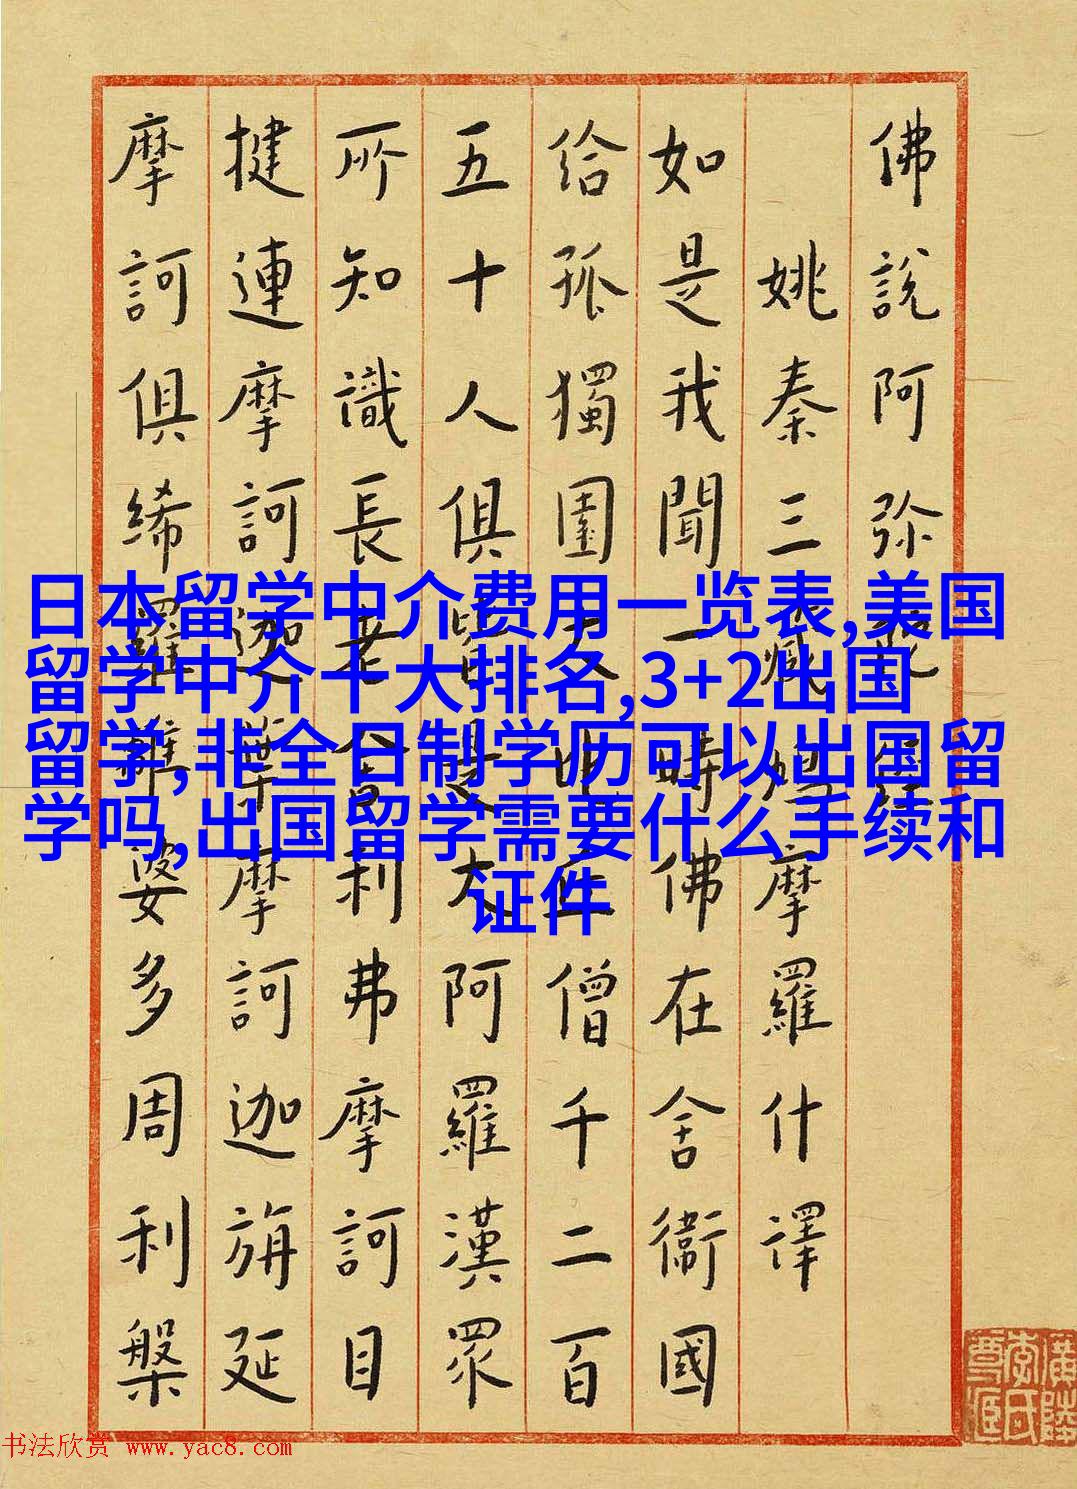 佛說阿弥陀經
姚秦三藏鳩摩羅什譯
如是我聞一時佛在舍衛國
給孤獨園大比丘僧千二百
五十人俱皆是大阿羅漢眾
所知識長老舍利弗摩訶目
揵連摩訶迦葉摩訶迦旃延
摩訶俱絺羅離婆多周利槃
日本留学中介费用一览表,美国
留学中介十大排名,3+2出国
留学,非全日制学历可以出国留
学吗,出国留学需要什么手续和
证件
书法欣赏 www.yac8.com